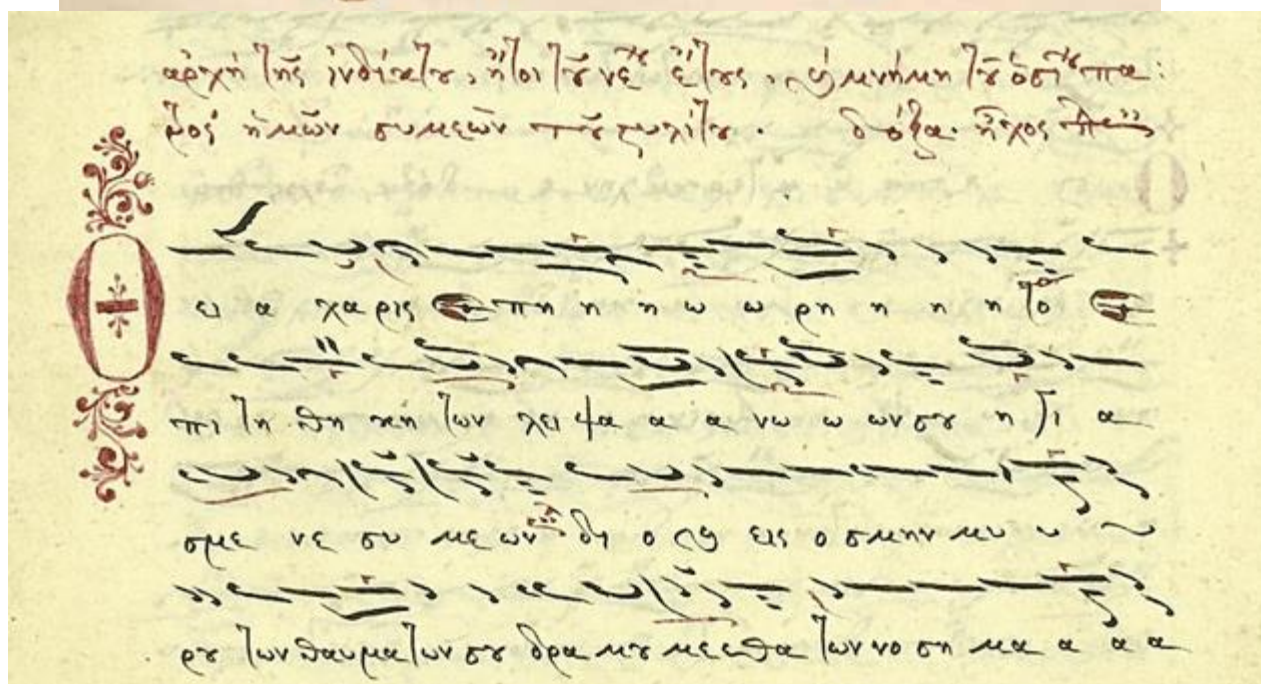 ἀρχὴ τῆς ἰνδίκτου, ἤτοι τοῦ νέου ἔτους, μνήμη τοῦ ὁσίου πα:
τρος ἡμῶν συμεὼν τοῦ στυλίτου. δόξα. ἦχος πλ
Θ ει α χα ρις πη η η ω ω ρη η η η το ε
πι τη θη κη των λει ψα α α νω ω ων σου η γι α
σμε νε συ με ων δι ο ϗ εις ο σμην μυ υ υ
ρου των θαυμα των σου δρα μου με ε θα των νο ση μα α α α